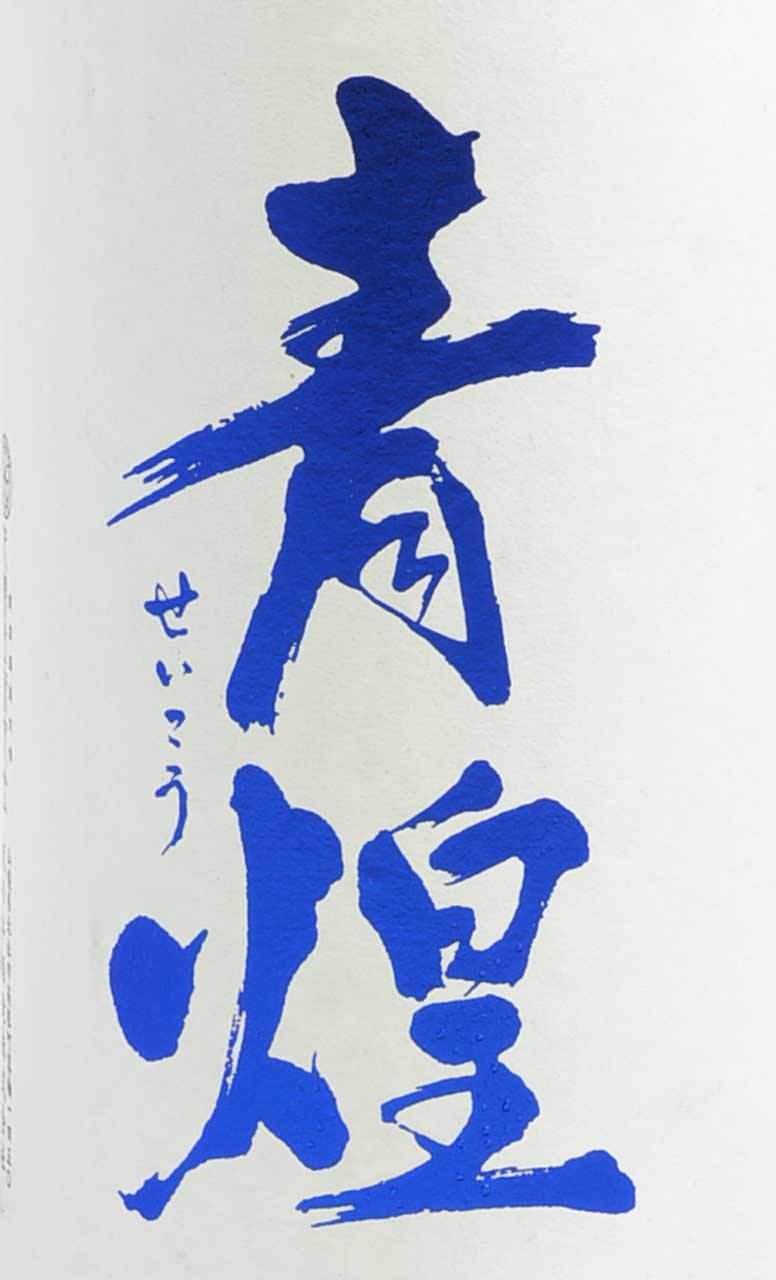 青煌
せいこう